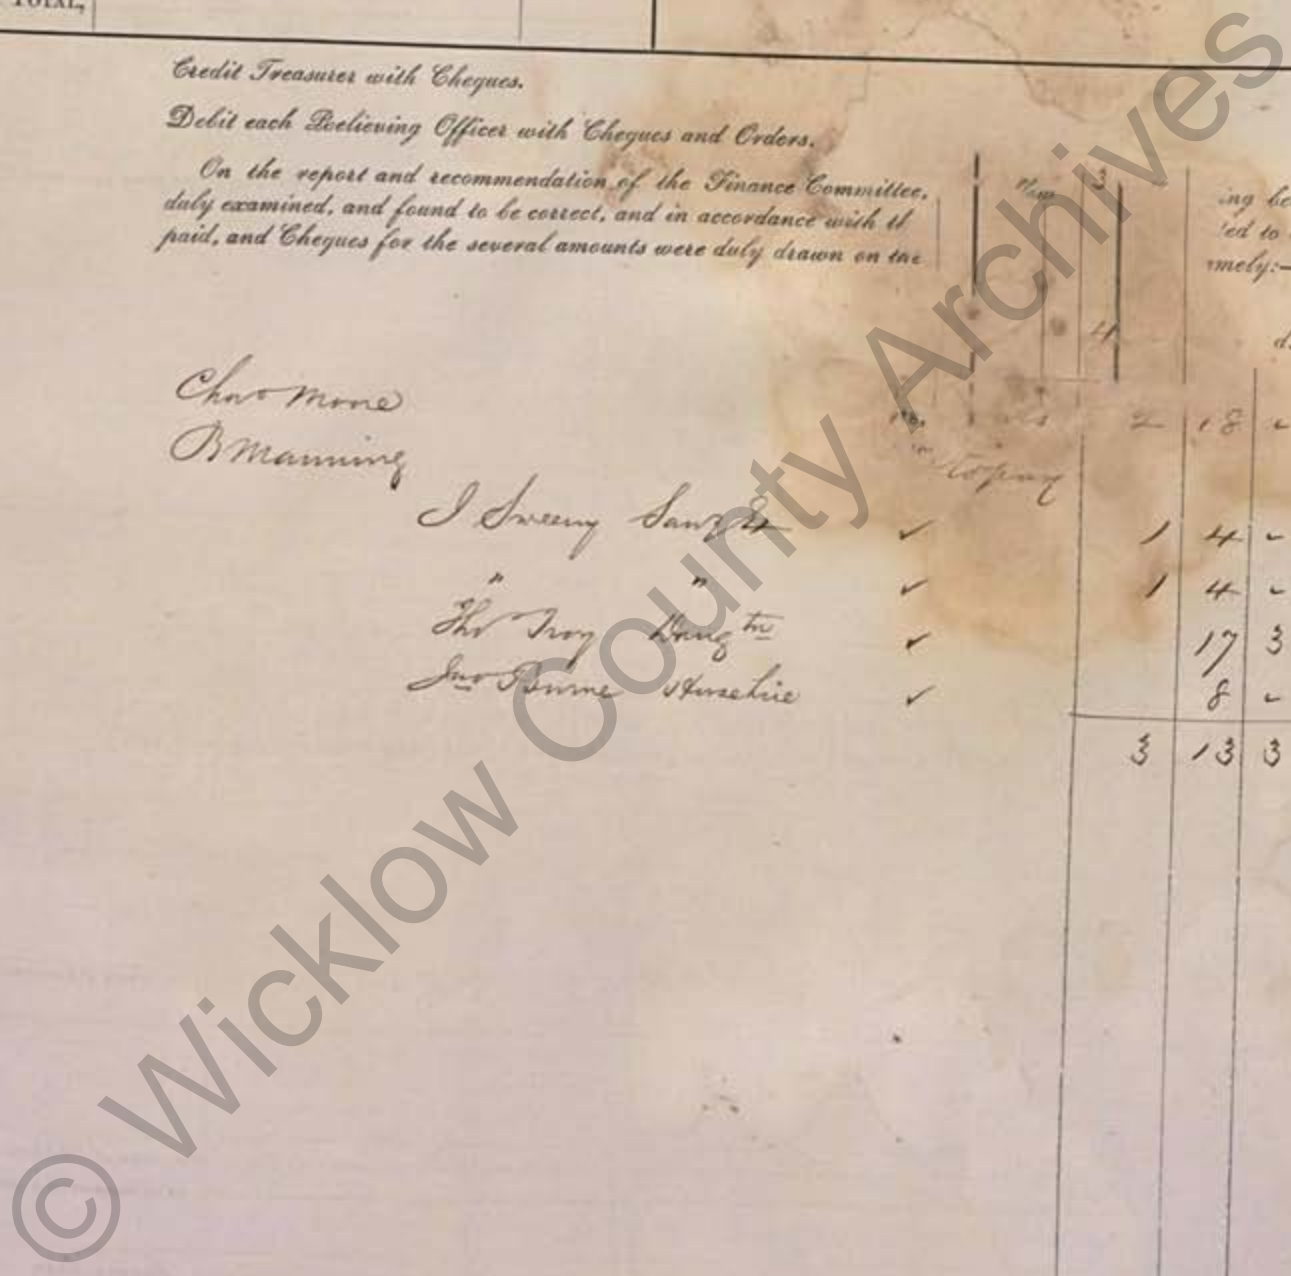 TOTAL,
Credit Treasurer with Cheques.
Debit each Relieving Officer with Cheques and Orders.
On the report and recommendation of the Finance Committee,
duly examined, and found to be correct, and in accordance with th
paid, and Cheques for the several amounts were duly drawn on the
3
ing be
ted to
mely:—
4
d.
Chas Moore
2 18 -
B Manning
J Sweeny ✓ 1 4 -
" " ✓ 1 4 -
Thos Troy ✓ 17 3
Jno Byrne ✓ 8 -
3 13 3
© Wicklow County Archives